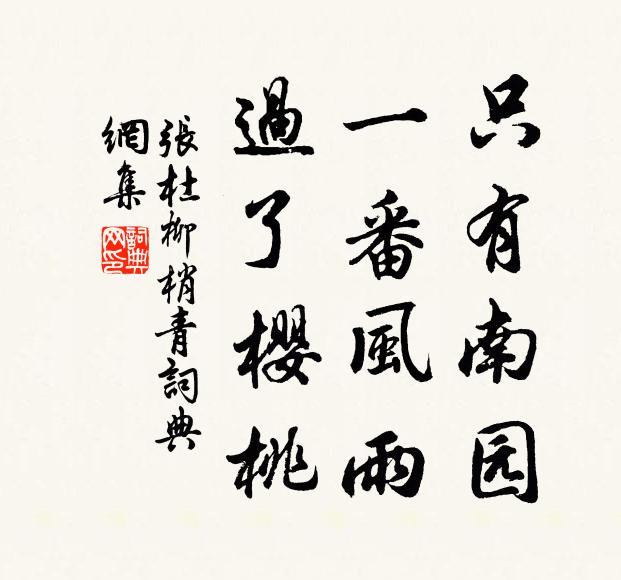 只有南园
一番風雨
過了櫻桃
張杜柳梢青詞典
網集
詞典
网印